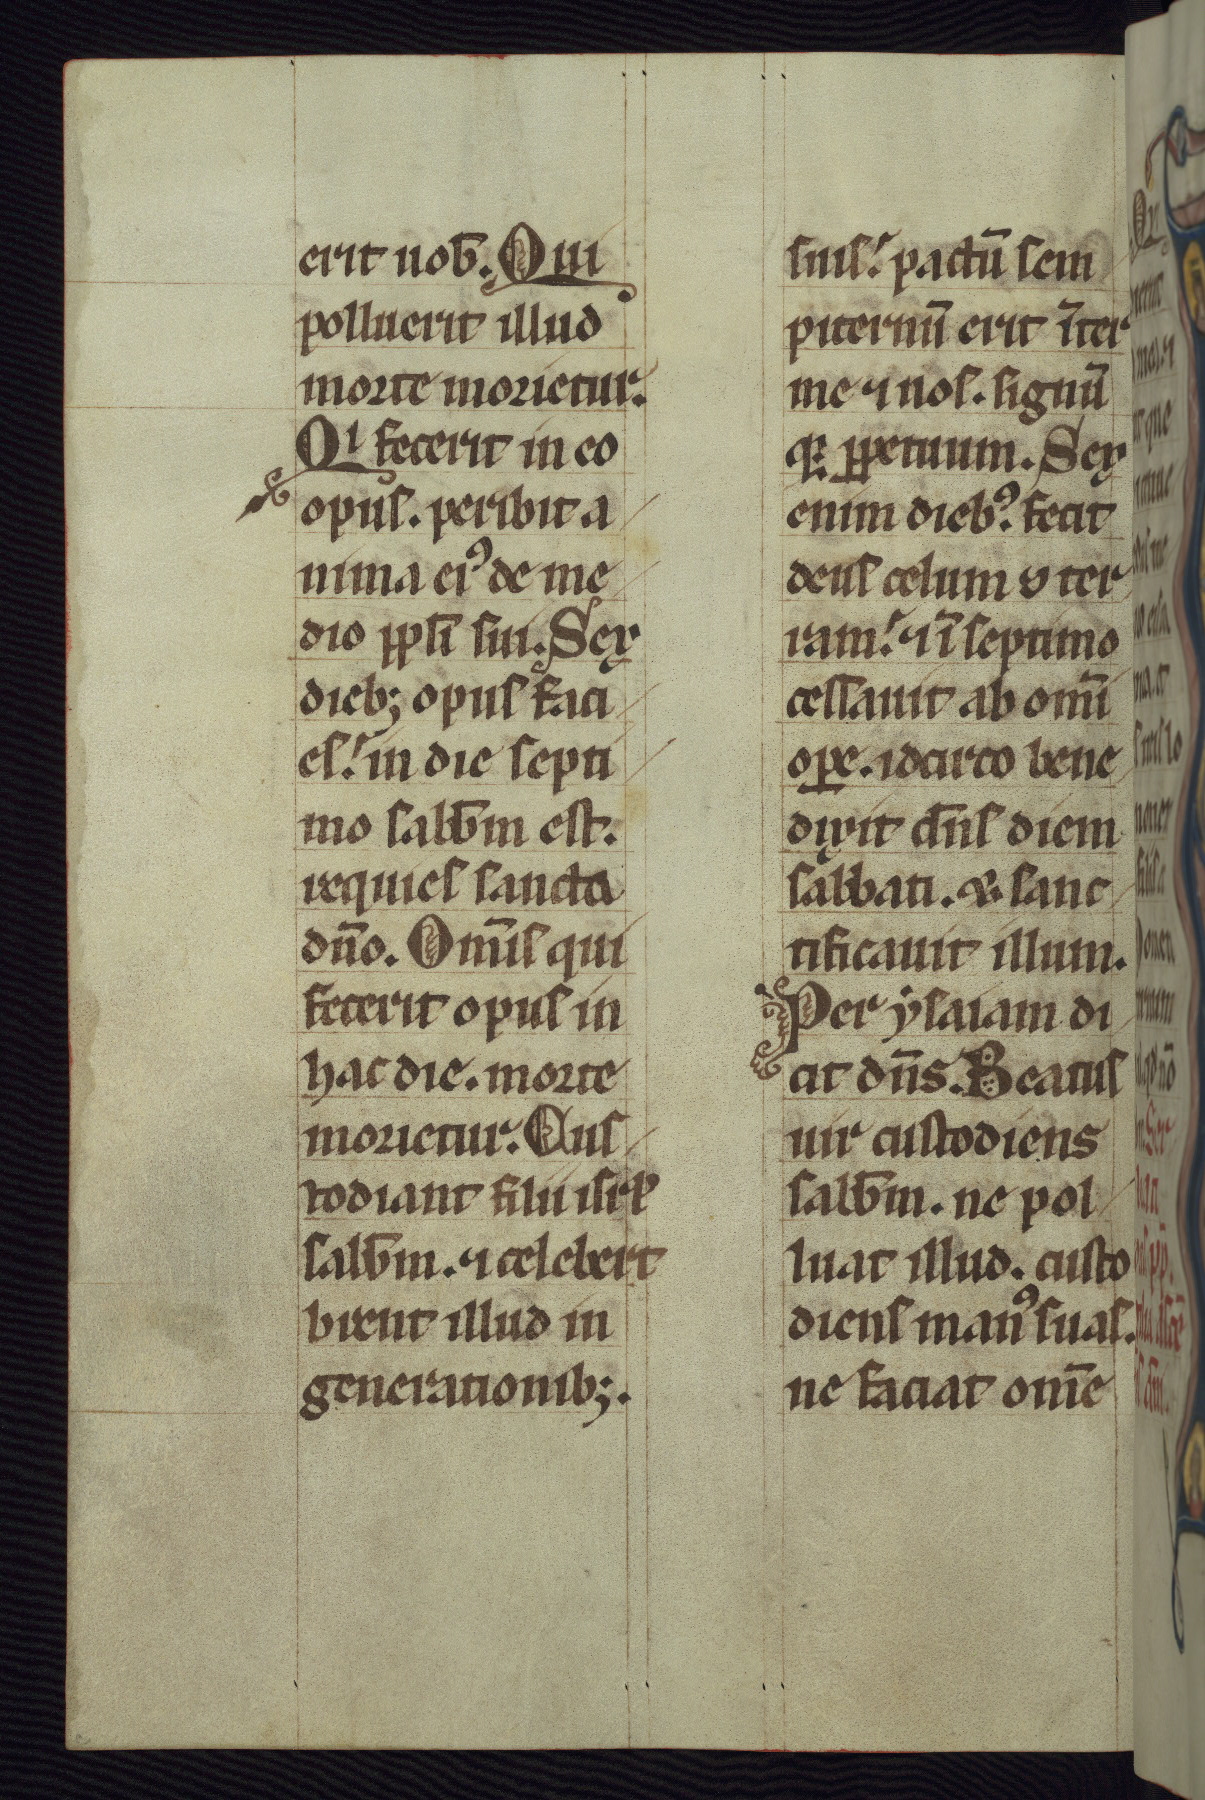 erit uob̄. Qui
polluerit illud
morte morietur.
Qi fecerit in eo
opus. peribit a
nima ei⁹ de me
dio ppłi sui. Sex
dieb; opus faci
es. in die septi
mo sabb̄m est.
requies sancta
dn̄o. Om̄is qui
fecerit opus in
hac die. morte
morietur. Cus
todiant filii isrł
sabb̄m. ⁊ celebert
birent illud in
generationib;.
suis. pactū sem
piternū erit īter
me ⁊ uos. signū
q; ꝑpetuum. Sex
enim dieb⁹. fecit
deus celum & ter
ram. ⁊ ī septimo
cessauit ab om̄i
oꝑe. idcirco bene
dixit dn̄s diem
sabbati. & sanc
tificauit illum.
Per ẏsaiam di
cit dn̄s. Beatus
uir custodiens
sabb̄m. ne pol
luat illud. custo
diens man⁹ suas.
ne faciat om̄e